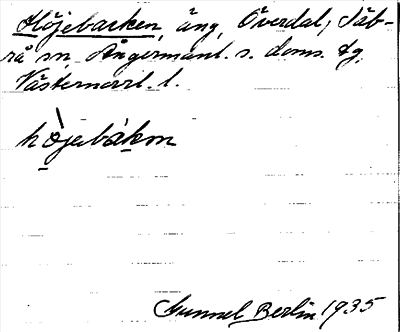 Höjebacken, äng, Överdal, Säb-
rå sn, Ångermanl. s. doms. tg,
Västernorrl. l.
hòjabákɐn
Gunnel Berlin 1935